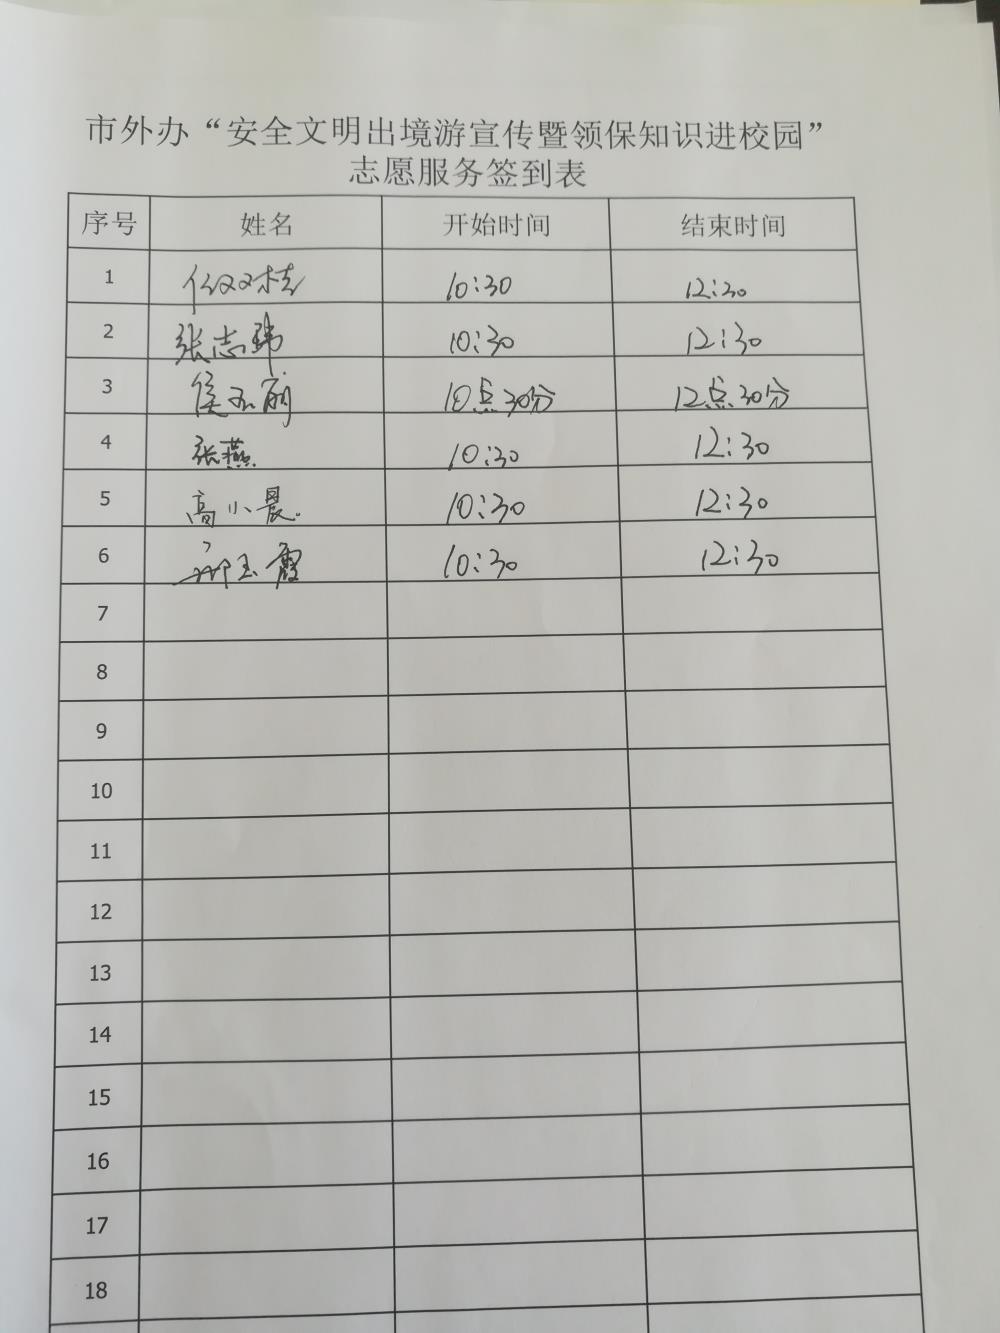 市外办“安全文明出境游宣传暨领保知识进校园”
志愿服务签到表
序号 姓名 开始时间 结束时间
1 10:30 12:30
2 张志玮 10:30 12:30
3 侯 丽 10点30分 12点30分
4 张燕 10:30 12:30
5 高小晨. 10:30 12:30
6 玉霞 10:30 12:30
7
8
9
10
11
12
13
14
15
16
17
18